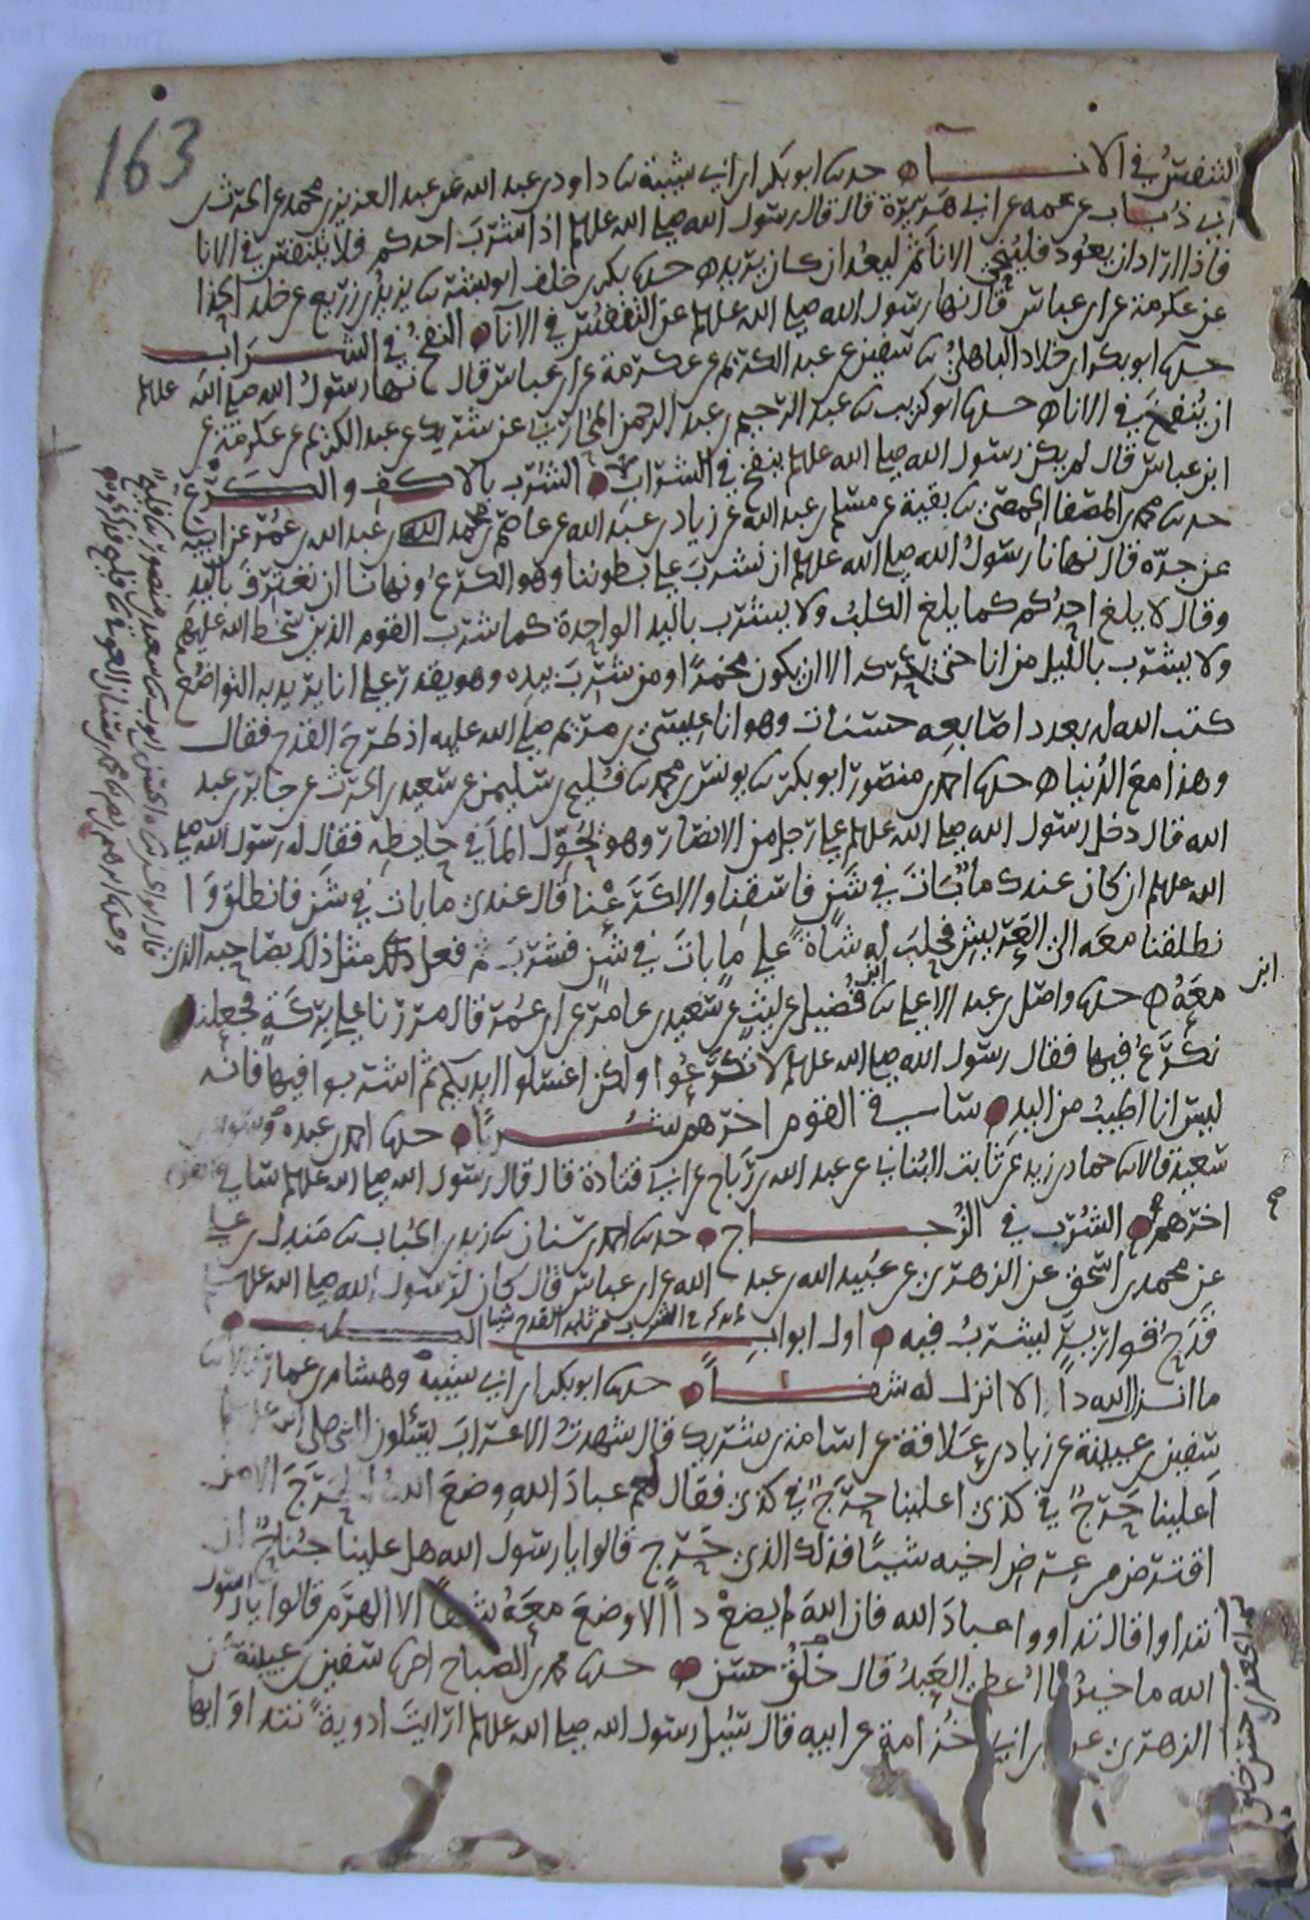 163
التنفس في الاناء حدثنا ابو بكر ابن ابي شيبة ثنا داود بن عبد الله عن عبد العزيز بن محمد عن الحرث بن
ابي ذباب عن عمه عن ابي هريرة قال قال رسول الله صلى الله عليه وسلم اذا شرب احدكم فلا يتنفس في الانا
فاذا اراد ان يعود فلينحي الانا ثم ليعد ان كان يريد حدثنا بكر بن خلف ابو بشر ثنا يزيد بن زريع عن خلد الحذا
عن عكرمة عن ابن عباس قال نها رسول الله صلى الله عليه وسلم عن التنفس في الانا النفخ في الشراب
حدثنا ابو بكر ابن خلاد الباهلي ثنا سفين عن عبد الكريم عن عكرمة عن ابن عباس قال نها رسول الله صلى الله عليه وسلم
ان ينفخ في الانا حدثنا ابو كريب ثنا عبد الرحيم بن عبد الرحمن المحاربي عن شريك عن عبد الكريم عن عكرمة عن
ابن عباس قال لم يكن رسول الله صلى الله عليه وسلم ينفخ في الشراب الشرب بالاكف والكرع
حدثنا محمد بن المصفا الحمصي ثنا بقية عن مسلم بن عبد الله عن زياد بن عبد الله عن عاصم بن محمد بن عبد الله بن عمر عن ابيه
عن جده قال نهانا رسول الله صلى الله عليه وسلم ان نشرب على بطوننا وهو الكرع ونهانا ان نغترف باليد
وقال لا يلغ احدكم كما يلغ الكلب ولا يشرب باليد الواحدة كما شرب القوم الذين سخط الله عليهم
ولا يشرب بالليل من انا حتى يحركه الا ان يكون مخمرا ومن شرب بيده وهو يقدر على انا يريد به التواضع
كتب الله له بعدد اصابعه حسنات وهو انا عيسى بن مريم صلى الله عليه اذ طرح القدح فقال
وهذا مع الدنيا حدثنا احمد بن منصور ابو بكر ثنا يونس بن محمد ثنا فليح بن سليمن عن سعيد بن الحرث عن جابر بن عبد
الله قال دخل رسول الله صلى الله عليه وسلم على رجل من الانصار وهو يحول الما في حايطه فقال له رسول الله صلى
الله عليه وسلم ان كان عندك ما بات في شن فاسقنا والا كرعنا قال عندي ما بات في شن فانطلق وا
نطلقنا معه الى العريش فحلب له شاة على ما بات في شن فشرب ثم فعل مثل ذلك بصاحبه الذي
معه حدثنا واصل بن عبد الاعلى ثنا ابن فضيل عن ليث عن سعيد بن عامر عن ابن عمر قال مررنا على بركة فجعلنا
نكرع فيها فقال رسول الله صلى الله عليه وسلم لا تكرعوا ولكن اغسلوا ايديكم ثم اشربوا فيها فانه
ليس انا اطيب من اليد ساقي القوم اخرهم شربا حدثنا احمد بن عبده وسويد بن
سعيد قالا ثنا حماد بن زيد عن ثابت البناني عن عبد الله بن رباح عن ابي قتادة قال قال رسول الله صلى الله عليه وسلم ساقي القوم
اخرهم الشرب في الزجاج حدثنا احمد بن سنان ثنا زيد بن الحباب ثنا مندل بن علي
عن محمد بن اسحق عن الزهري عن عبيد الله بن عبد الله عن ابن عباس قال كان لرسول الله صلى الله عليه
قدح قوارير يشرب فيه اول ابواب الطب
ما انزل الله دا الا انزل له شفا حدثنا ابو بكر ابن ابي شيبة وهشام بن عمار قالا ثنا
سفين بن عيينة عن زياد بن علاقة عن اسامة بن شريك قال شهدت الاعراب يسئلون النبي صلى الله عليه
اعلينا حرج في كذى اعلينا حرج في كذى فقال لهم عباد الله وضع الله الحرج الا من
اقترض من عرض اخيه شيئا فذلك الذي حرج قالوا يا رسول الله هل علينا جناح ان
نتداوا قال تداووا عباد الله فان الله لم يضع دا الا وضع معه شفا الا الهرم قالوا يا رسول
الله ما خير ما اعطي العبد قال خلق حسن حدثنا محمد بن الصباح انا سفين بن عيينة عن
الزهري عن ابن ابي خزامة عن ابيه قال سئيل رسول الله صلى الله عليه وسلم ارايت ادوية نتداوا بها
ابن